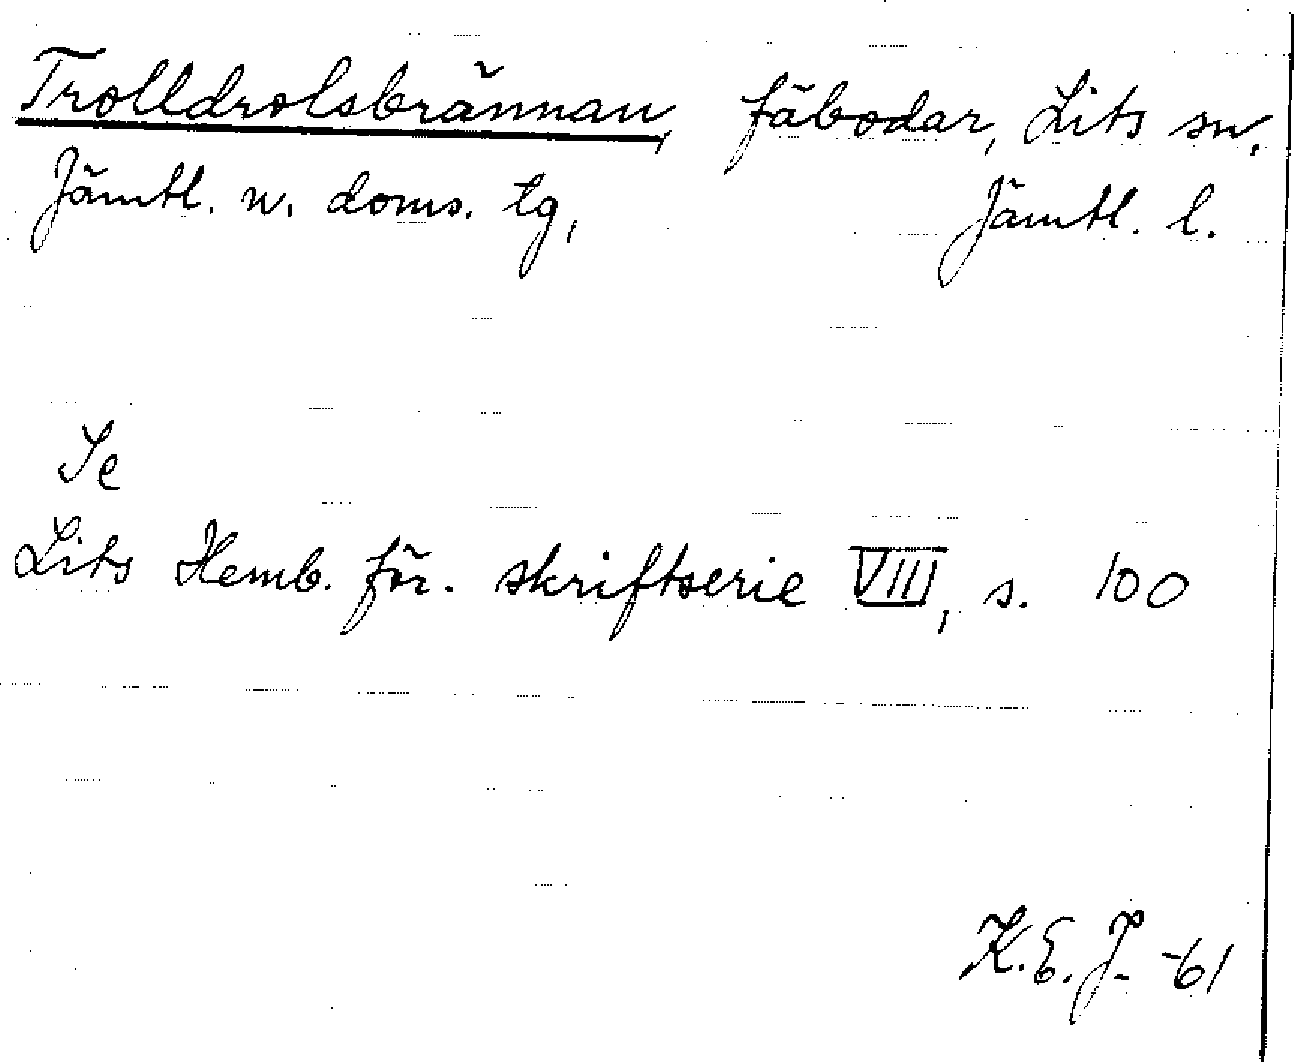 Trolldrolsbrännan, fäbodar, Lits sn,
Jämtl. n. doms. tg, Jämtl. l.
Se
Lits Hemb. för. skriftserie VIII, s. 100
K.E.J. -61